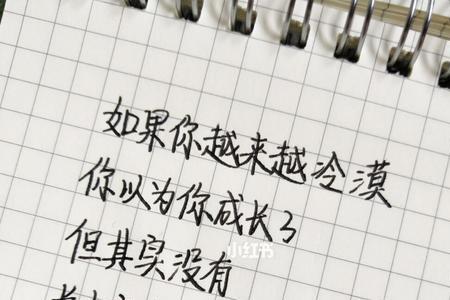 如果你越来越冷漠
你以为你成长了
但其实没有
小红书